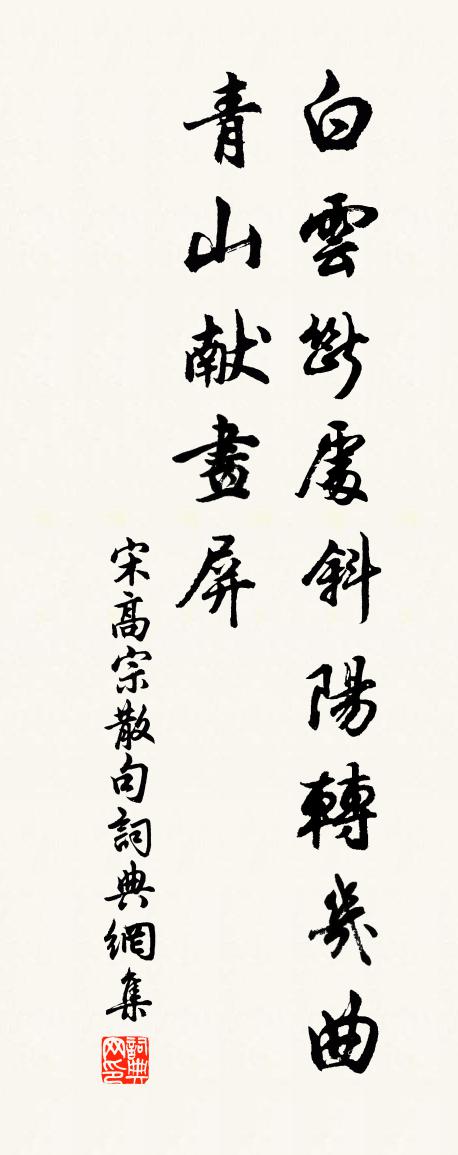 白雲斷處斜陽轉幾曲
青山献畫屏
宋高宗散句詞典網集
詞典网印